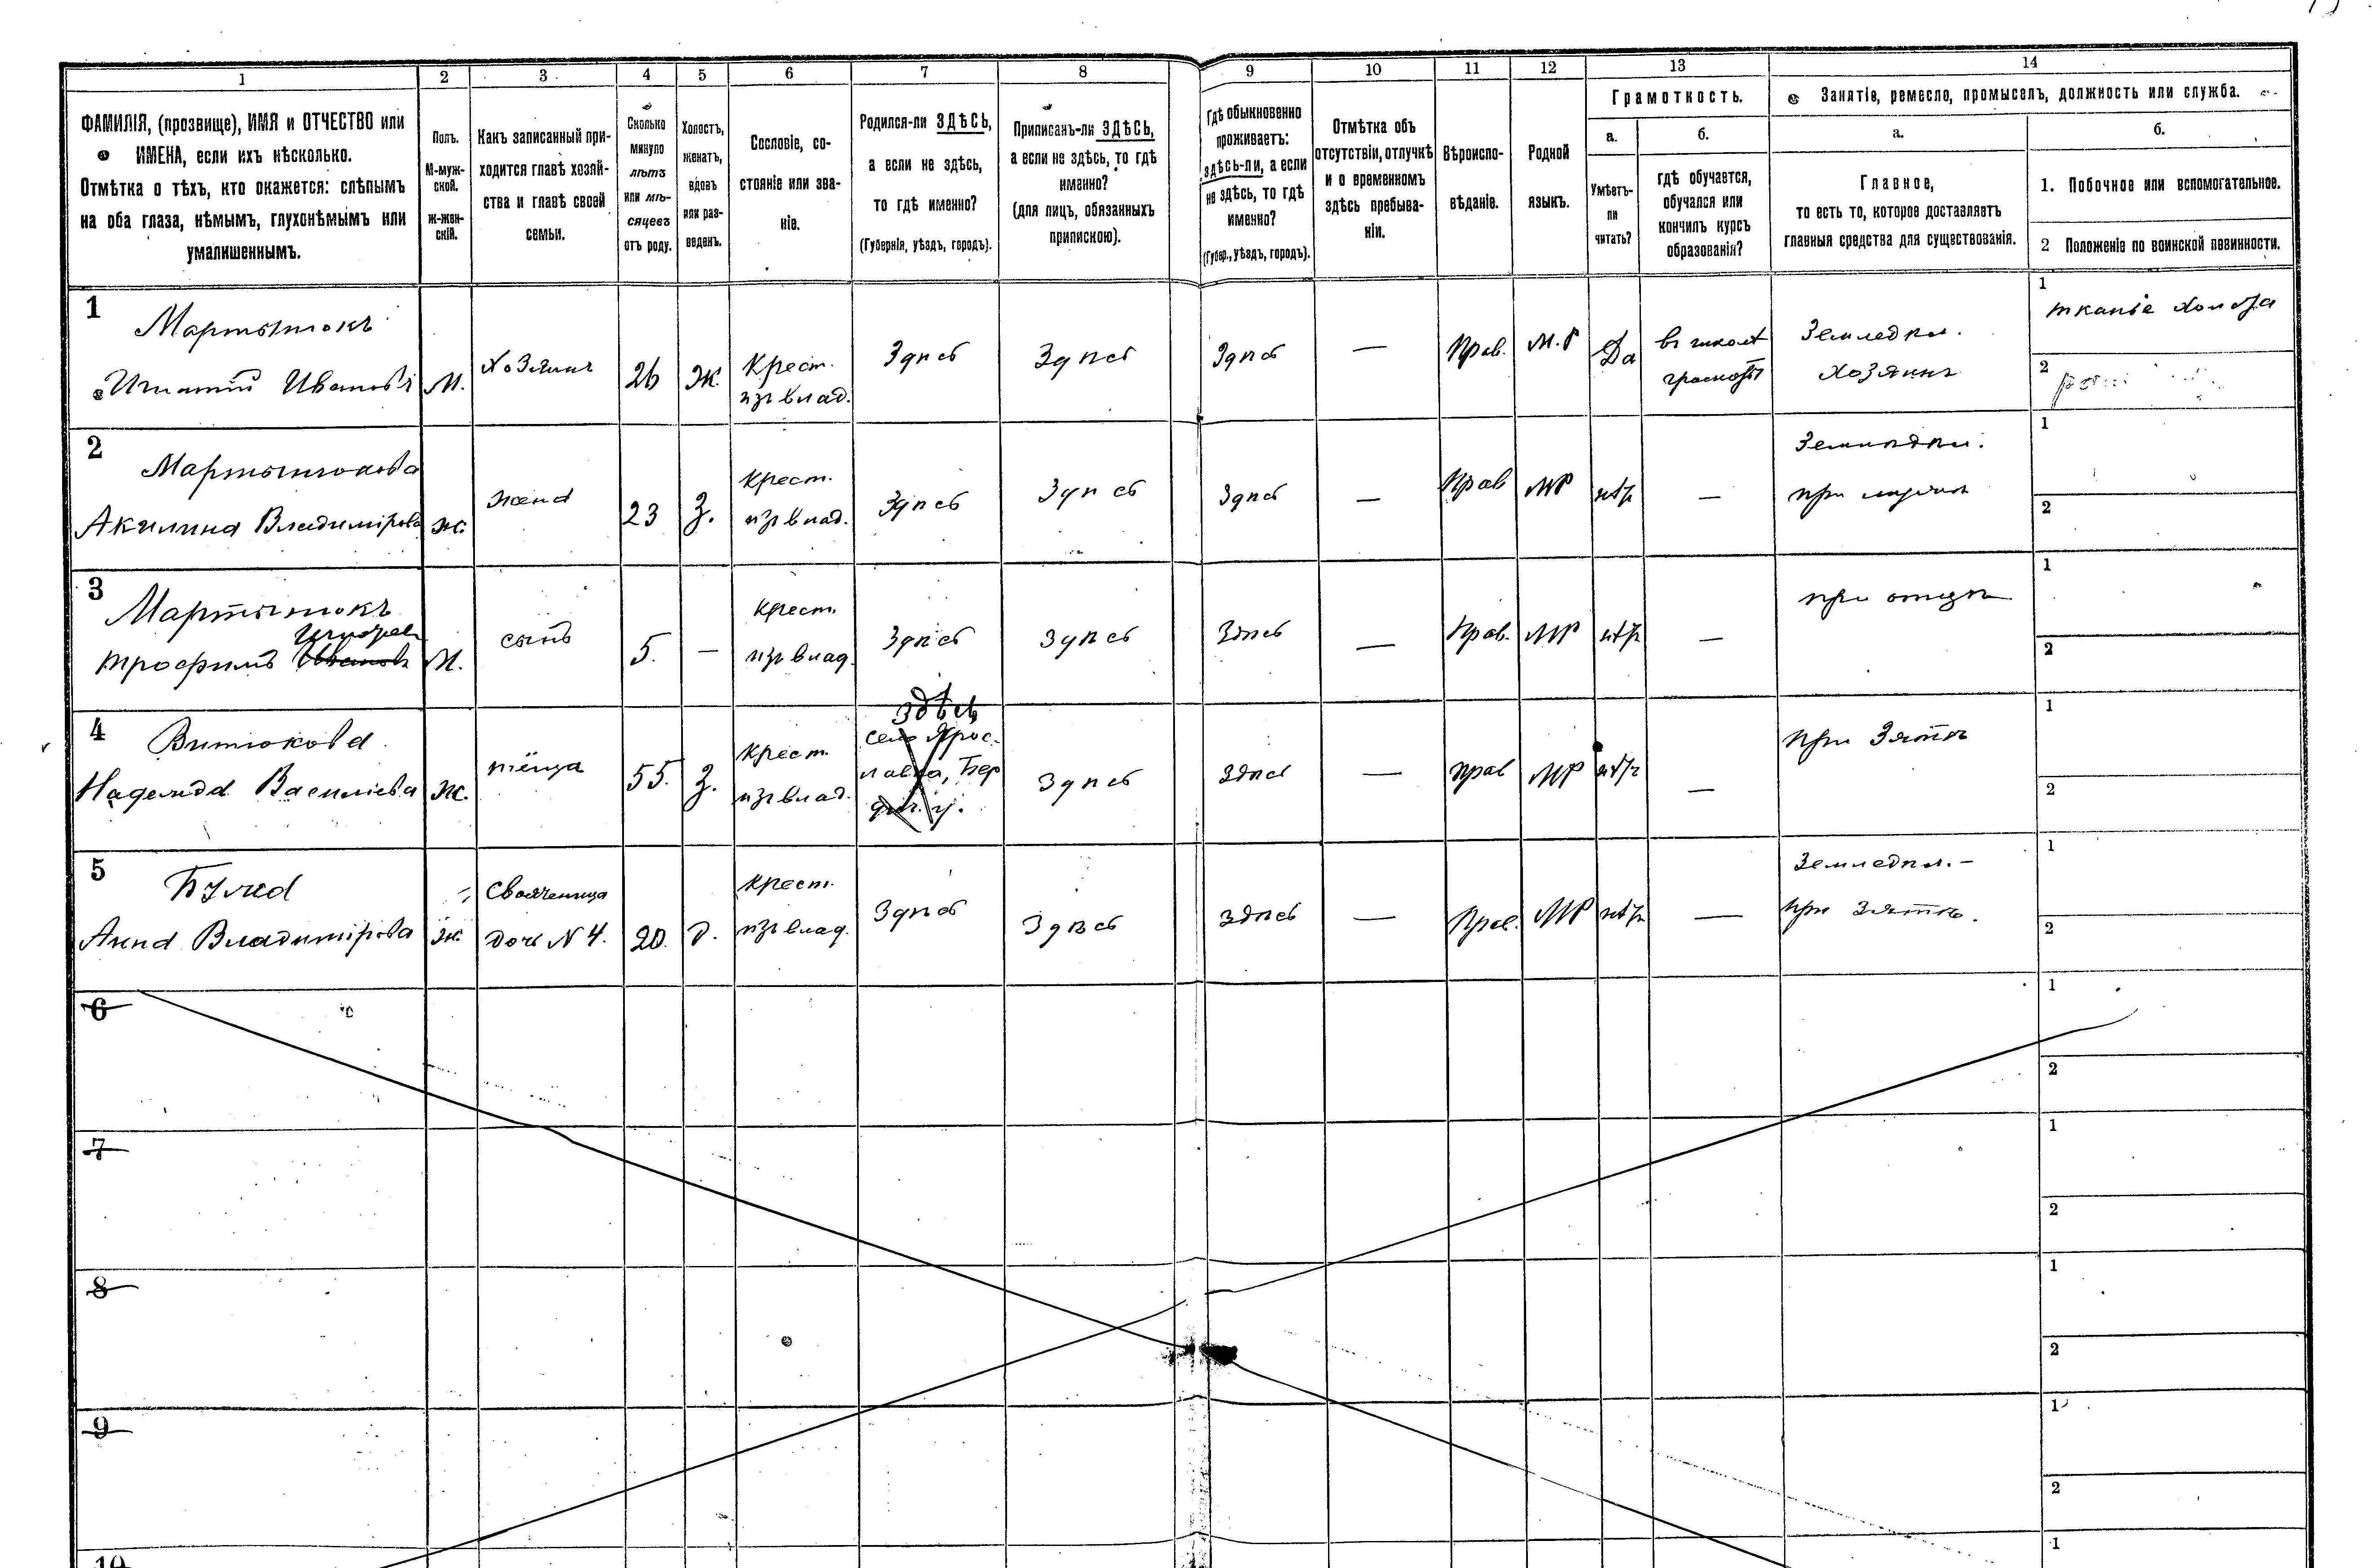 1 2 3 4 5 6 7 8 9 10 11 12 13 14
ФАМИЛІЯ, (прозвище), ИМЯ и ОТЧЕСТВО или
ИМЕНА, если ихъ нѣсколько.
Отмѣтка о тѣхъ, кто окажется: слѣпымъ
на оба глаза, нѣмымъ, глухонѣмымъ или
умалишеннымъ.
Полъ.
М-муж-
ской.
ж-жен-
скій.
Какъ записанный при-
ходится главѣ хозяй-
ства и главѣ своей
семьи.
Сколько
минуло
лѣтъ
или мѣ-
сяцевъ
отъ роду.
Холостъ,
женатъ,
вдовъ
или раз-
веденъ.
Сословіе, со-
стояніе или зва-
ніе.
Родился-ли ЗДѢСЬ,
а если не здѣсь,
то гдѣ именно?
(Губернія, уѣздъ, городъ).
Приписанъ-ли ЗДѢСЬ,
а если не здѣсь, то гдѣ
именно?
(для лицъ, обязанныхъ
припискою).
Гдѣ обыкновенно
проживаетъ:
здѣсь-ли, а если
не здѣсь, то гдѣ
именно?
(Губер., уѣздъ, городъ).
Отмѣтка объ
отсутствіи, отлучкѣ
и о временномъ
здѣсь пребыва-
ніи.
Вѣроиспо-
вѣданіе.
Родной
языкъ.
Грамотность.
а.
Умѣетъ-
ли
читать?
б.
гдѣ обучается,
обучался или
кончилъ курсъ
образованія?
Занятіе, ремесло, промыселъ, должность или служба.
а.
Главное,
то есть то, которое доставляетъ
главныя средства для существованія.
б.
1. Побочное или вспомогательное.
2 Положеніе по воинской повинности.
1
Мартынюкъ
Игнатій Ивановъ
М.
хозяинъ
26
Ж.
Крест.
изъ влад.
Здѣсь
Здѣсь
Здѣсь
—
Прав.
М.Р
Да
въ школѣ
грамоты
Земледѣл.
хозяинъ
1
тканіе холста
2
2
Мартынюкова
Акилина Владимірова
ж.
жена
23
З.
Крест.
изъ влад.
Здѣсь
Здѣсь
Здѣсь
—
Прав
МР
нѣтъ
—
Земледѣл.
при мужѣ
1
2
3
Мартынюкъ
Игнатіев
Трофимъ Ивановъ
М.
сынъ
5.
—
Крест.
изъ влад.
Здѣсь
Здѣсь
Здѣсь
—
Прав.
МР
нѣтъ
—
при отцѣ
1
2
4
Витюкова
Надежда Василіева
ж.
тёща
55.
З.
Крест.
изъ влад.
здѣсь
село Ярос-
лавка, Бер
дич. у.
Здѣсь
Здѣсь
—
Прав
МР
нѣтъ
—
при Зятѣ
1
2
5
Анна Владимірова
ж.
Свояченица
дочь N 4.
20.
д.
Крест.
изъ влад.
Здѣсь
Здѣсь
Здѣсь
—
Прав.
МР
нѣтъ
—
Земледѣл. —
при зятѣ.
1
2
6
1
2
7
1
2
8
1
2
9
1
2
10
1